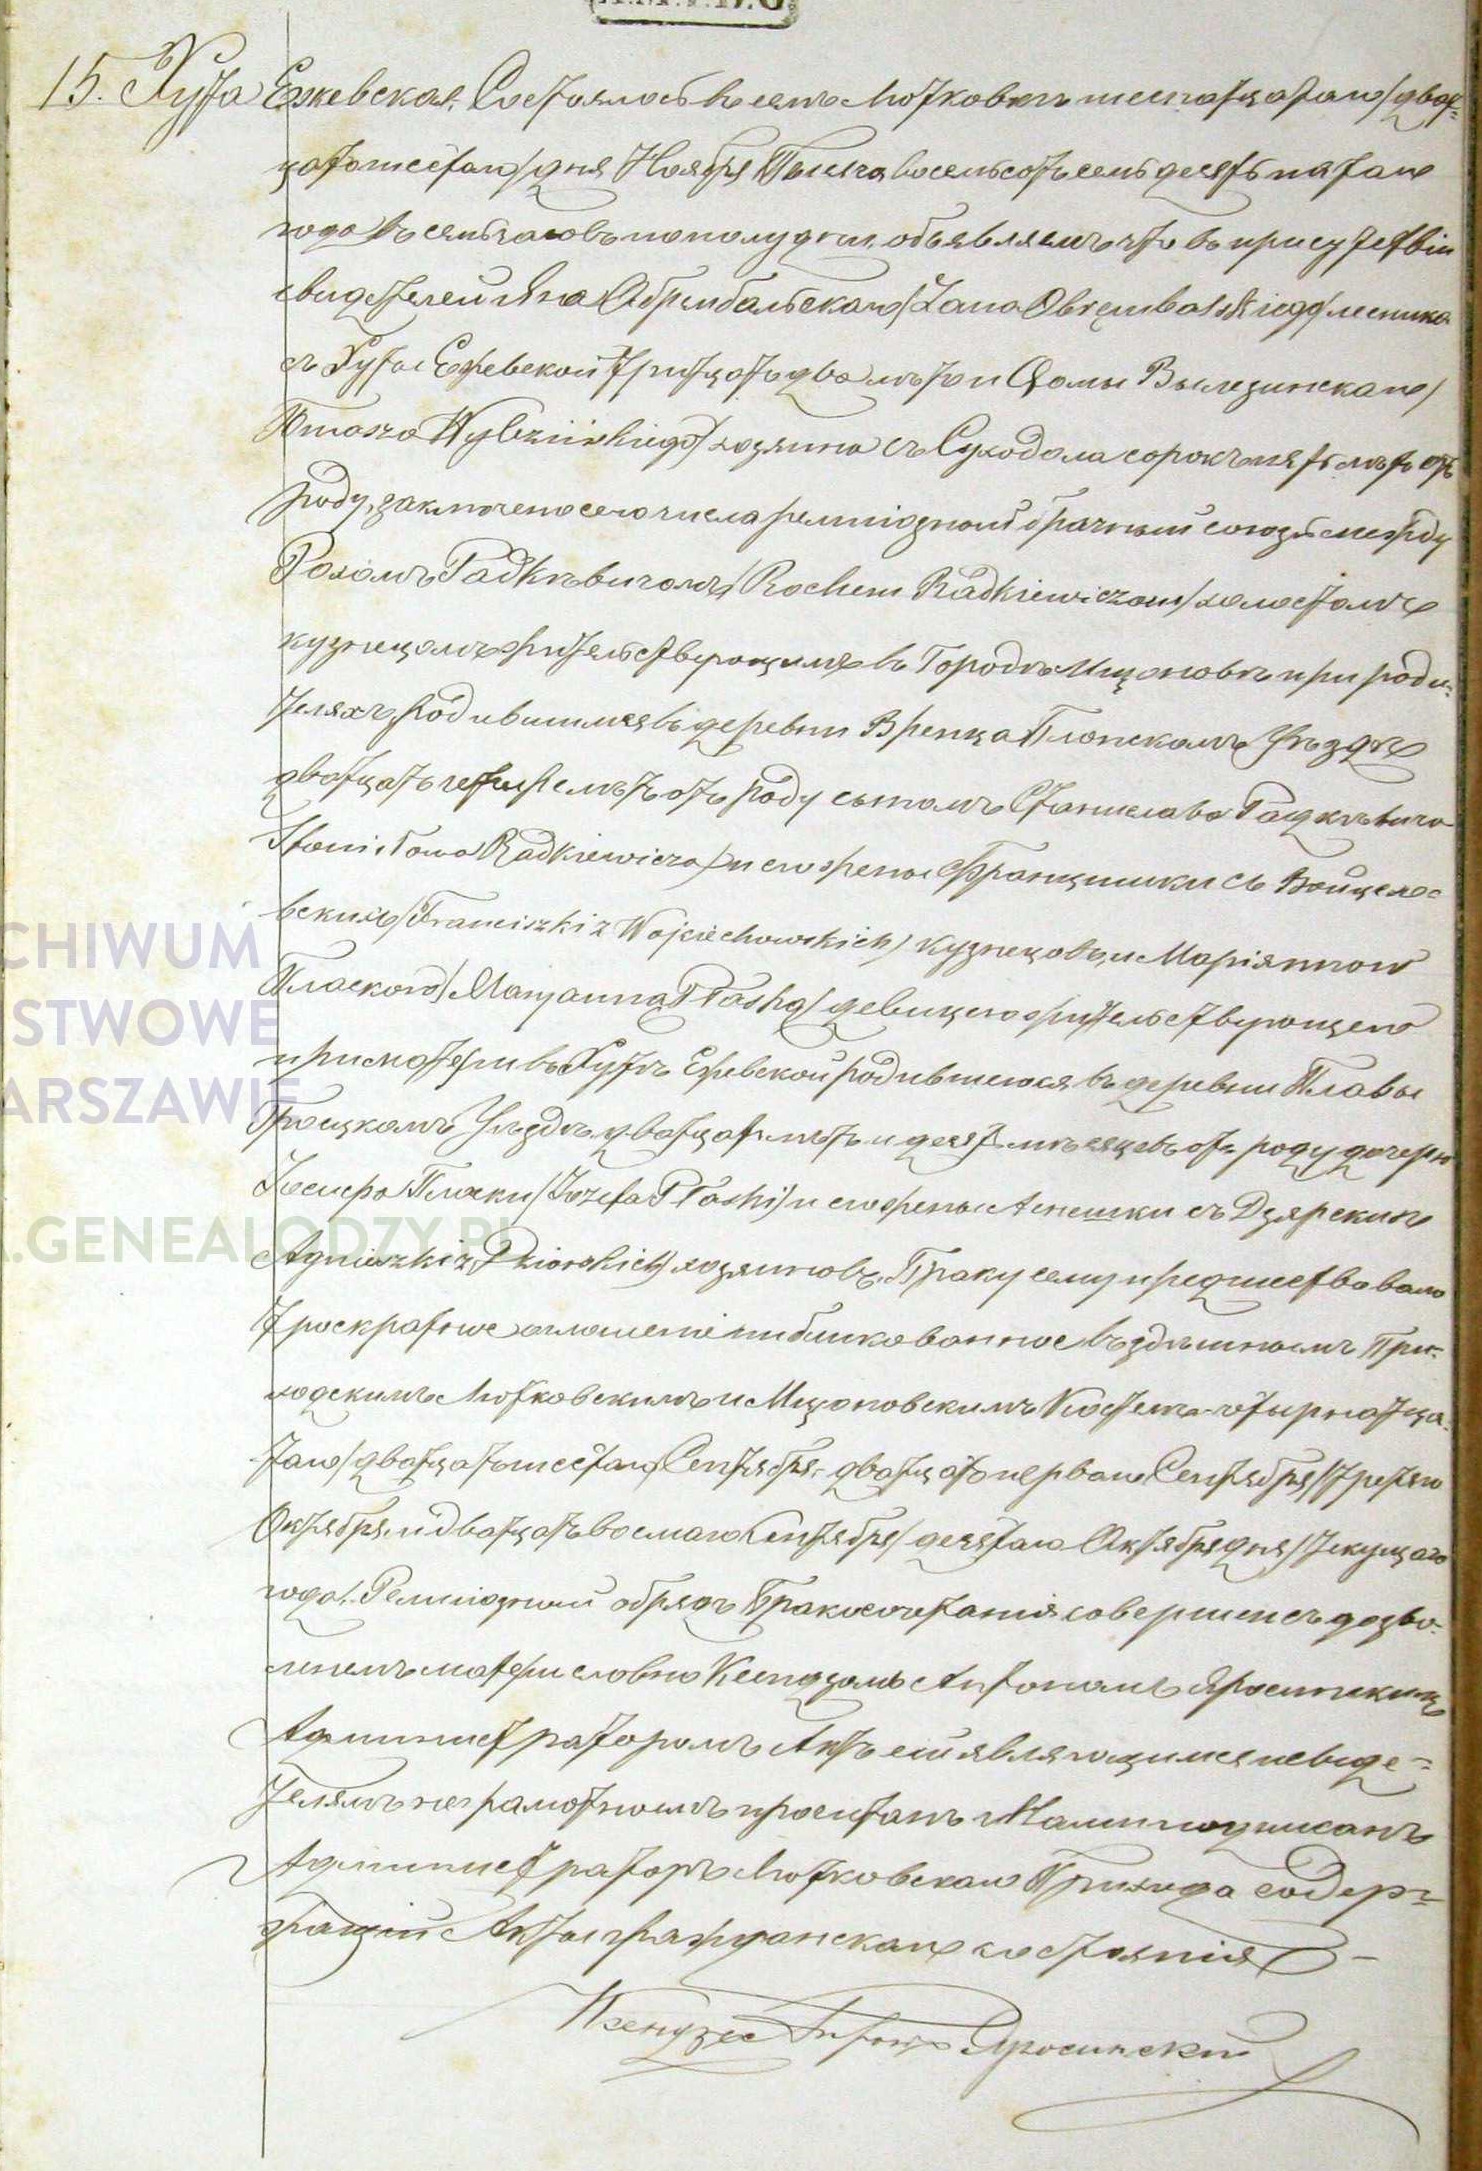 15. Хута Ежевская, Состоялось въ селѣ Лютковкѣ шеснатцатаго/двад=
цатошестаго/дня Ноября Тысяча восемьсотъ семьдесятъ пятаго
года въ семь часовъ пополудни, объявляемъ что въ присутствіи
свидетелей Яна Обрембальскаго/Jana Obrębalskiego/лесника
съ Хуты Ежевской тритцать два лѣтъ и Фомы Вылезинскаго/
Tomasza Wylezińskiego/хозяина съ Суходола сорокъ пять лѣтъ отъ
роду, заключено сего числа религіозный брачный союзъ между
Рохомъ Радкѣвичомъ/Rochem Radkiewiczem/холостомъ
кузнецомъ жительствующимъ въ Городѣ Мщоновѣ при роди=
теляхъ, родившимся въ деревни Вренца Плонскомъ Уѣздѣ
дватцать четыре лѣтъ отъ роду сыномъ Станислава Радкѣвича
Stanisława Radkiewicza/и его жены Францишки съ Войцехо=
вскихъ/Franciszki z Wojciechowskich/кузнецовъ, и Маріянною
Пласкою/Maryanną Płaską/девицею жительствующею
при матери въ Хутѣ Ежевской родившеюся въ деревни
Гроецкомъ Уѣздѣ дватцать лѣтъ и десять мѣсяцевъ отъ роду дочерью
Іосифа Пласки/Józefa Płaski/и его жены Агнешки съ Дзярскихъ
Agnieszki z Dziarskich/хозяиновъ. Браку сему предшествовало
троекратное оглашеніе публикованное въ здѣшнемъ При=
ходскимъ Лютковскимъ и Мщоновскимъ Костелѣ четырнатца=
таго/дватцатошестаго/Сентября, дватцать перваго Сентября/третяго
Октября и дватцать восмаго Сентября/десятаго Октября дня/текущаго
года. Религіозный обрядъ Бракосочетанія совершенъ дозво=
леніемъ матери словно Ксендзомъ Антономъ Яросинскимъ
Администраторомъ Актъ сей являющимся и свиде=
телямъ неграмотнымъ прочитанъ Нами подписанъ
Администраторъ Лютковскаго Прихода содер=
жащій Акты гражданскаго состоянія
Ксендзъ Антонъ Яросинскій
CHIWUM
STWOWE
ARSZAWIE
.GENEALODZY.PL